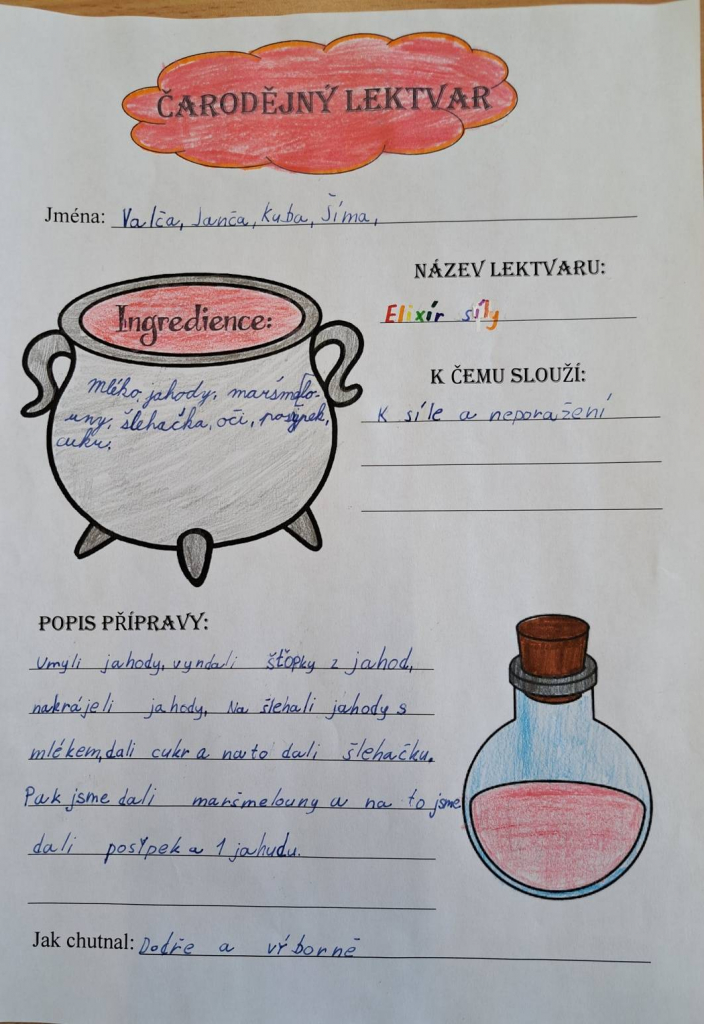 ČARODĚJNÝ LEKTVAR
Jména: Valča, Janča, Kuba, Šíma,
NÁZEV LEKTVARU:
Elixír síly
Ingredience:
mléko, jahody, maršmelo-
uny, šlehačka, oči, posypek,
cukr.
K ČEMU SLOUŽÍ:
K síle a neporažení
POPIS PŘÍPRAVY:
Umyli jahody, vyndali šťopky z jahod,
nakrájeli jahody, Na šlehali jahody s
mlékem, dali cukr a na to dali šlehačku.
Pak jsme dali maršmelouny a na to jsme
dali posýpek a 1 jahudu.
Jak chutnal: Dobře a výborně